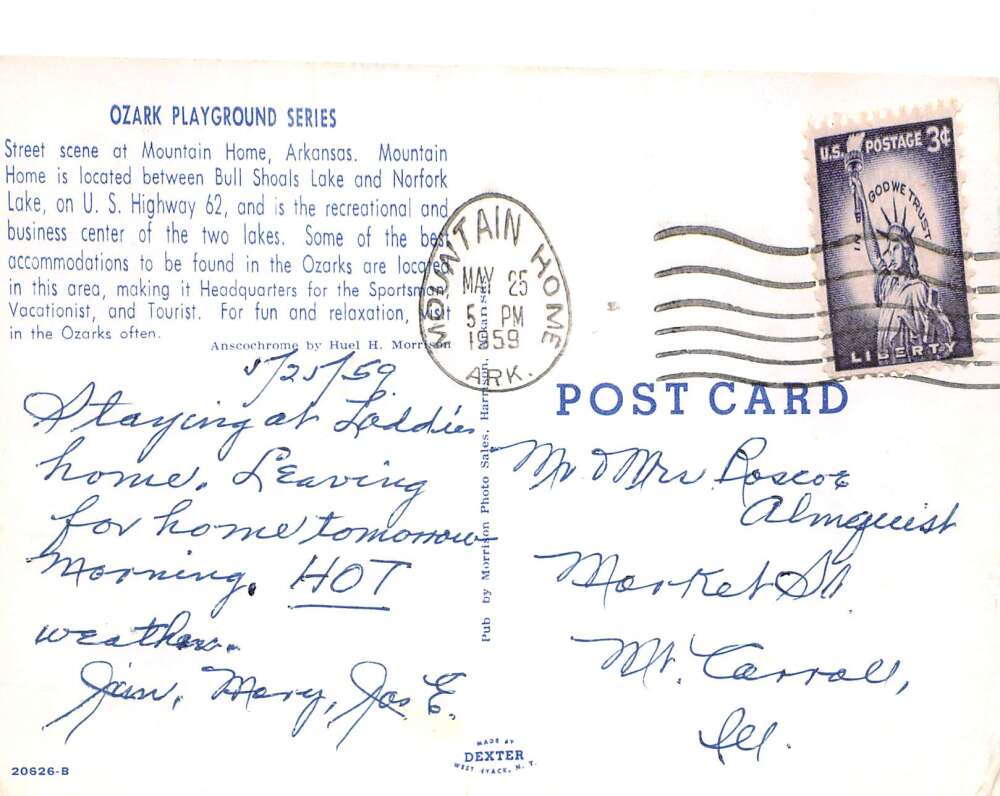 OZARK PLAYGROUND SERIES
Street scene at Mountain Home, Arkansas. Mountain
Home is located between Bull Shoals Lake and Norfork
Lake, on U. S. Highway 62, and is the recreational and
business center of the two lakes. Some of the best
accommodations to be found in the Ozarks are located
in this area, making it Headquarters for the Sportsman,
Vacationist, and Tourist. For fun and relaxation, visit
in the Ozarks often.
Anscochrome by Huel H. Morrison
MOUNTAIN HOME
MAY 25
5 PM
1959
ARK.
U.S. POSTAGE 3¢
IN GOD WE TRUST
LIBERTY
5/25/59
Staying at Liddie's
home. Leaving
for home tomorrow
morning. HOT
weather.
Jim, Mary, Jos. E.
Pub by Morrison Photo Sales, Harrison, Arkansas
POST CARD
Mr & Mrs Roscoe
Almquist
Market St
Mt. Carroll,
Ill.
MADE BY
DEXTER
WEST NYACK, N. Y.
20626-B